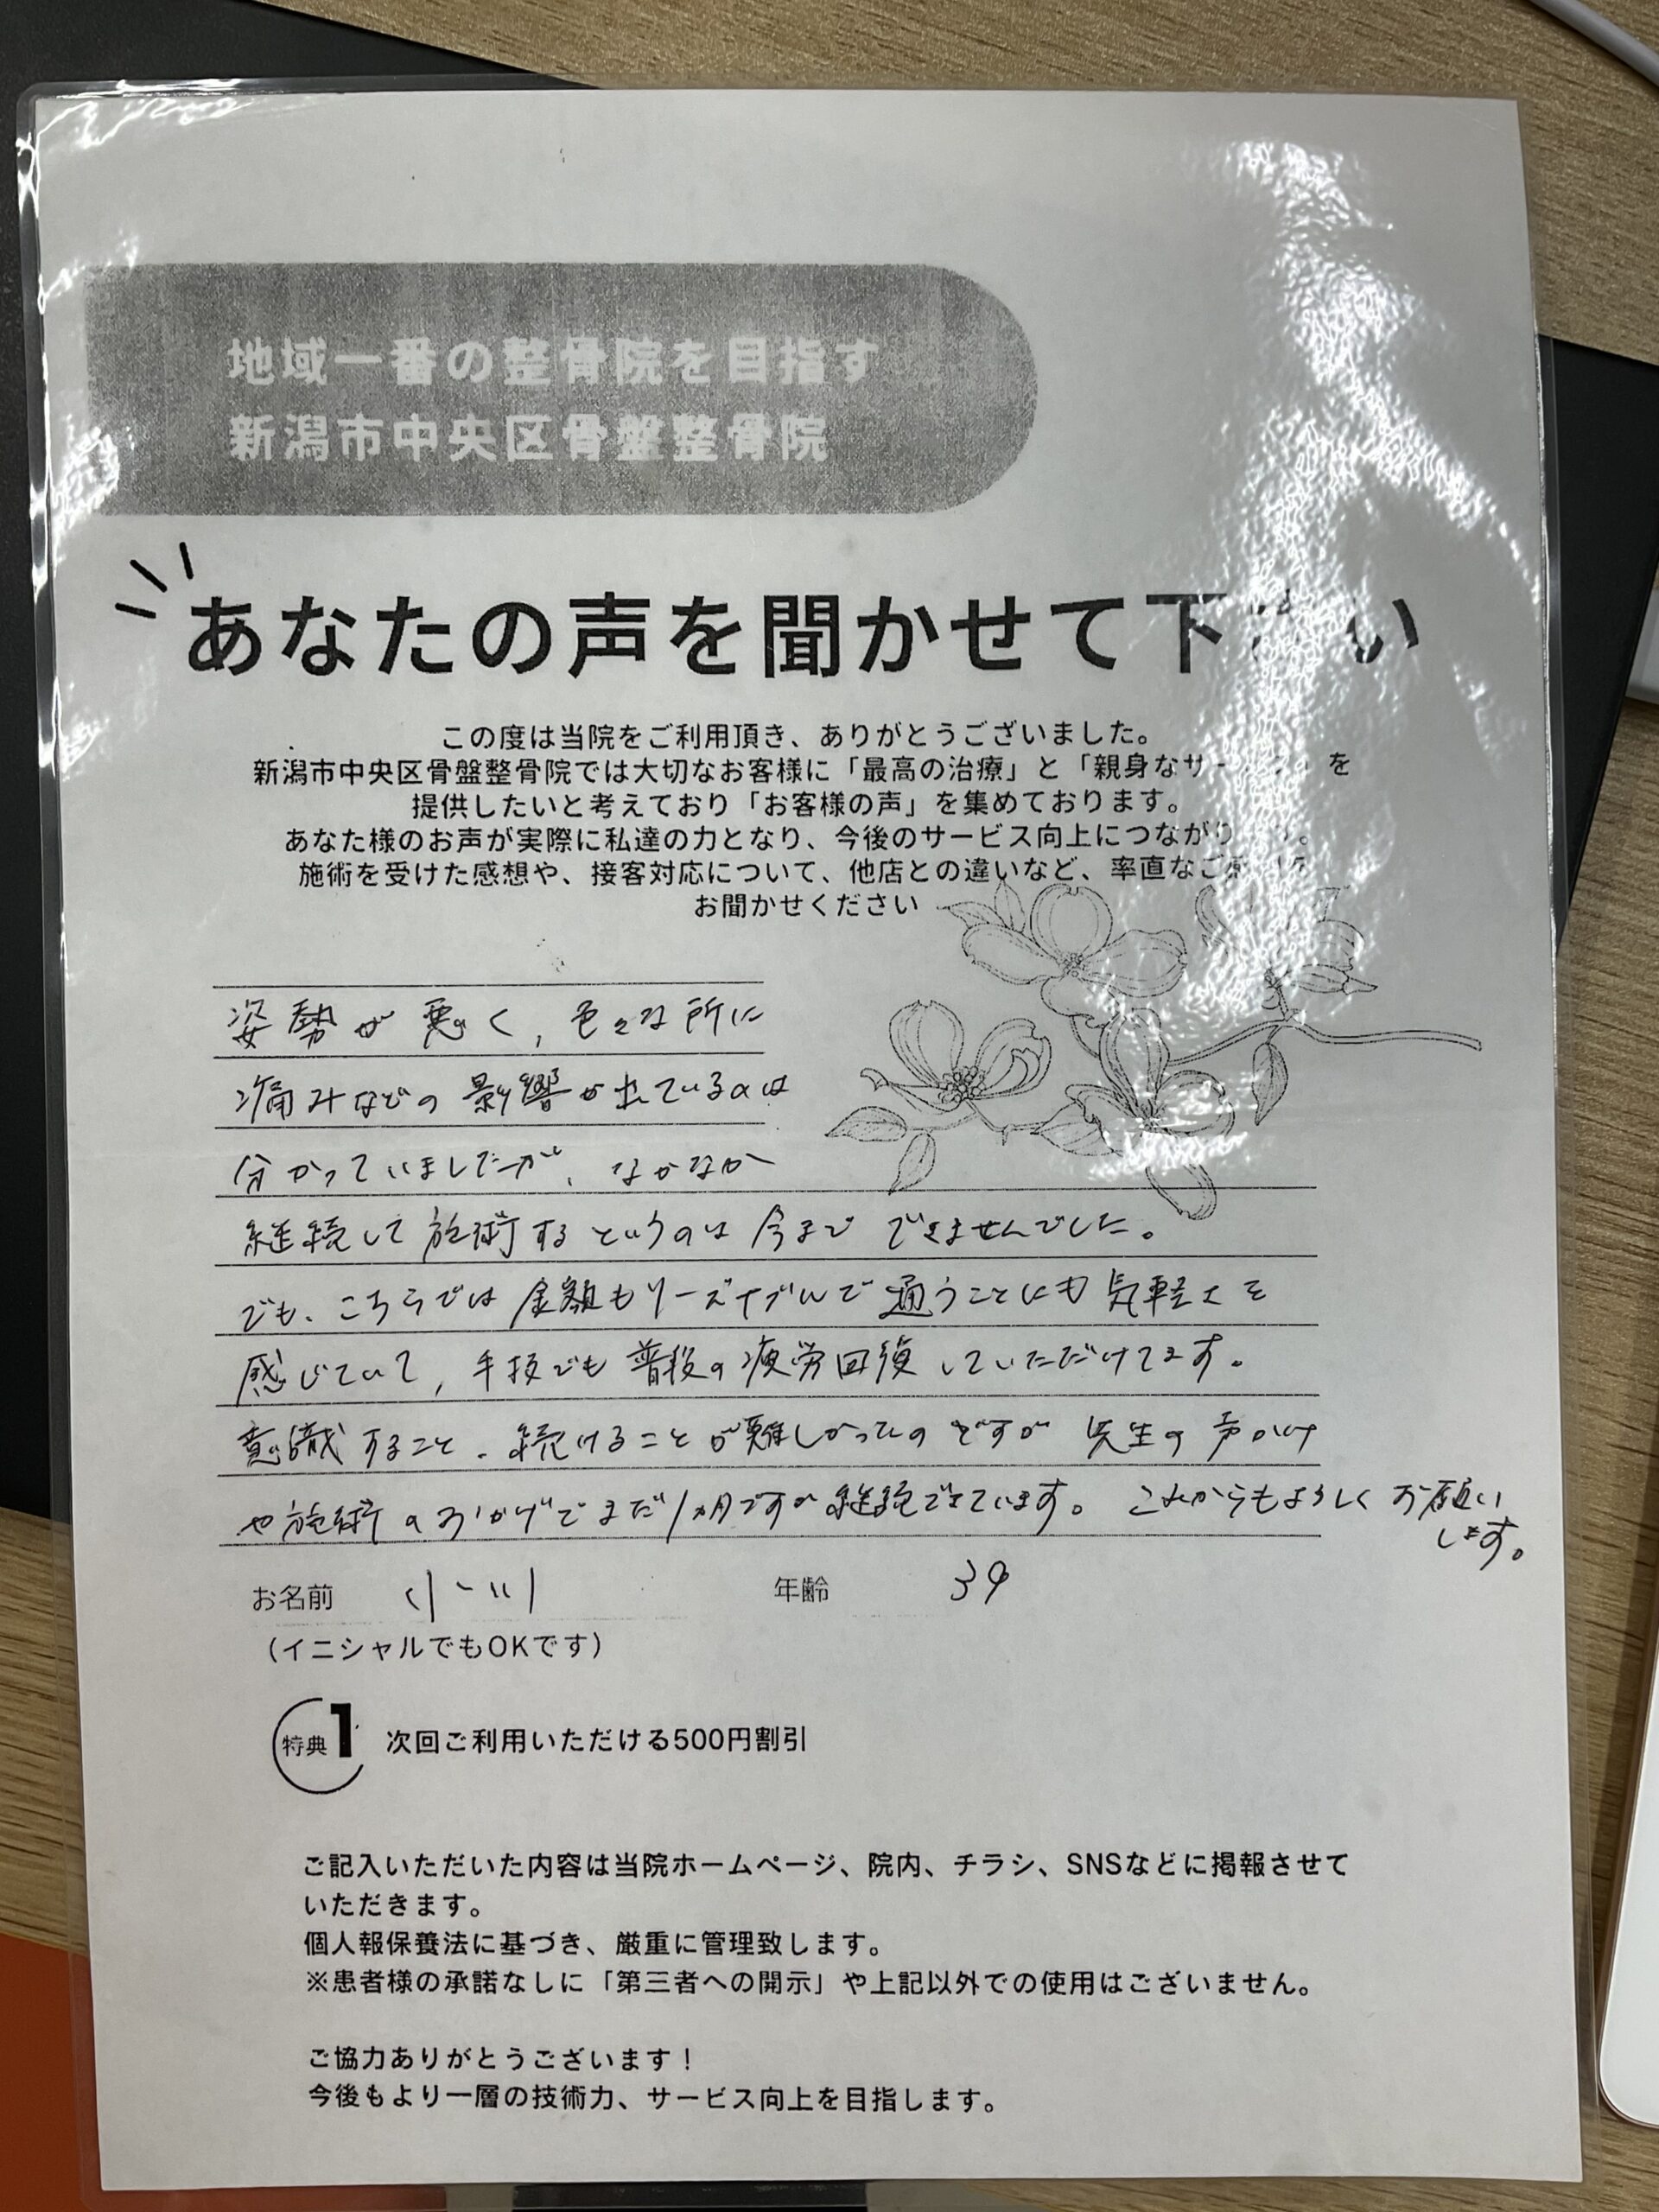 地域一番の整骨院を目指す
新潟市中央区骨盤整骨院
あなたの声を聞かせて下さい
この度は当院をご利用頂き、ありがとうございました。
新潟市中央区骨盤整骨院では大切なお客様に「最高の治療」と「親身なサービス」を
提供したいと考えており「お客様の声」を集めております。
あなた様のお声が実際に私達の力となり、今後のサービス向上につながり
施術を受けた感想や、接客対応について、他店との違いなど、率直なご
お聞かせください
姿勢が悪く、色々な所に
痛みなどの影響が出ているのは
分かっていましたが、なかなか
継続して施術するというのは今まで できませんでした。
でも、こちらでは金額もリーズナブルで通うことにも気軽さを
感じていて、手技でも普段の疲労回復していただけてます。
意識すること、続けることが難しかったのですが 先生の声かけ
や施術のおかげでまだ1ヵ月ですが継続できています。これからもよろしくお願い
します。
お名前 小川 年齢 39
（イニシャルでもOKです）
特典1 次回ご利用いただける500円割引
ご記入いただいた内容は当院ホームページ、院内、チラシ、SNSなどに掲報させて
いただきます。
個人報保養法に基づき、厳重に管理致します。
※患者様の承諾なしに「第三者への開示」や上記以外での使用はございません。
ご協力ありがとうございます！
今後もより一層の技術力、サービス向上を目指します。